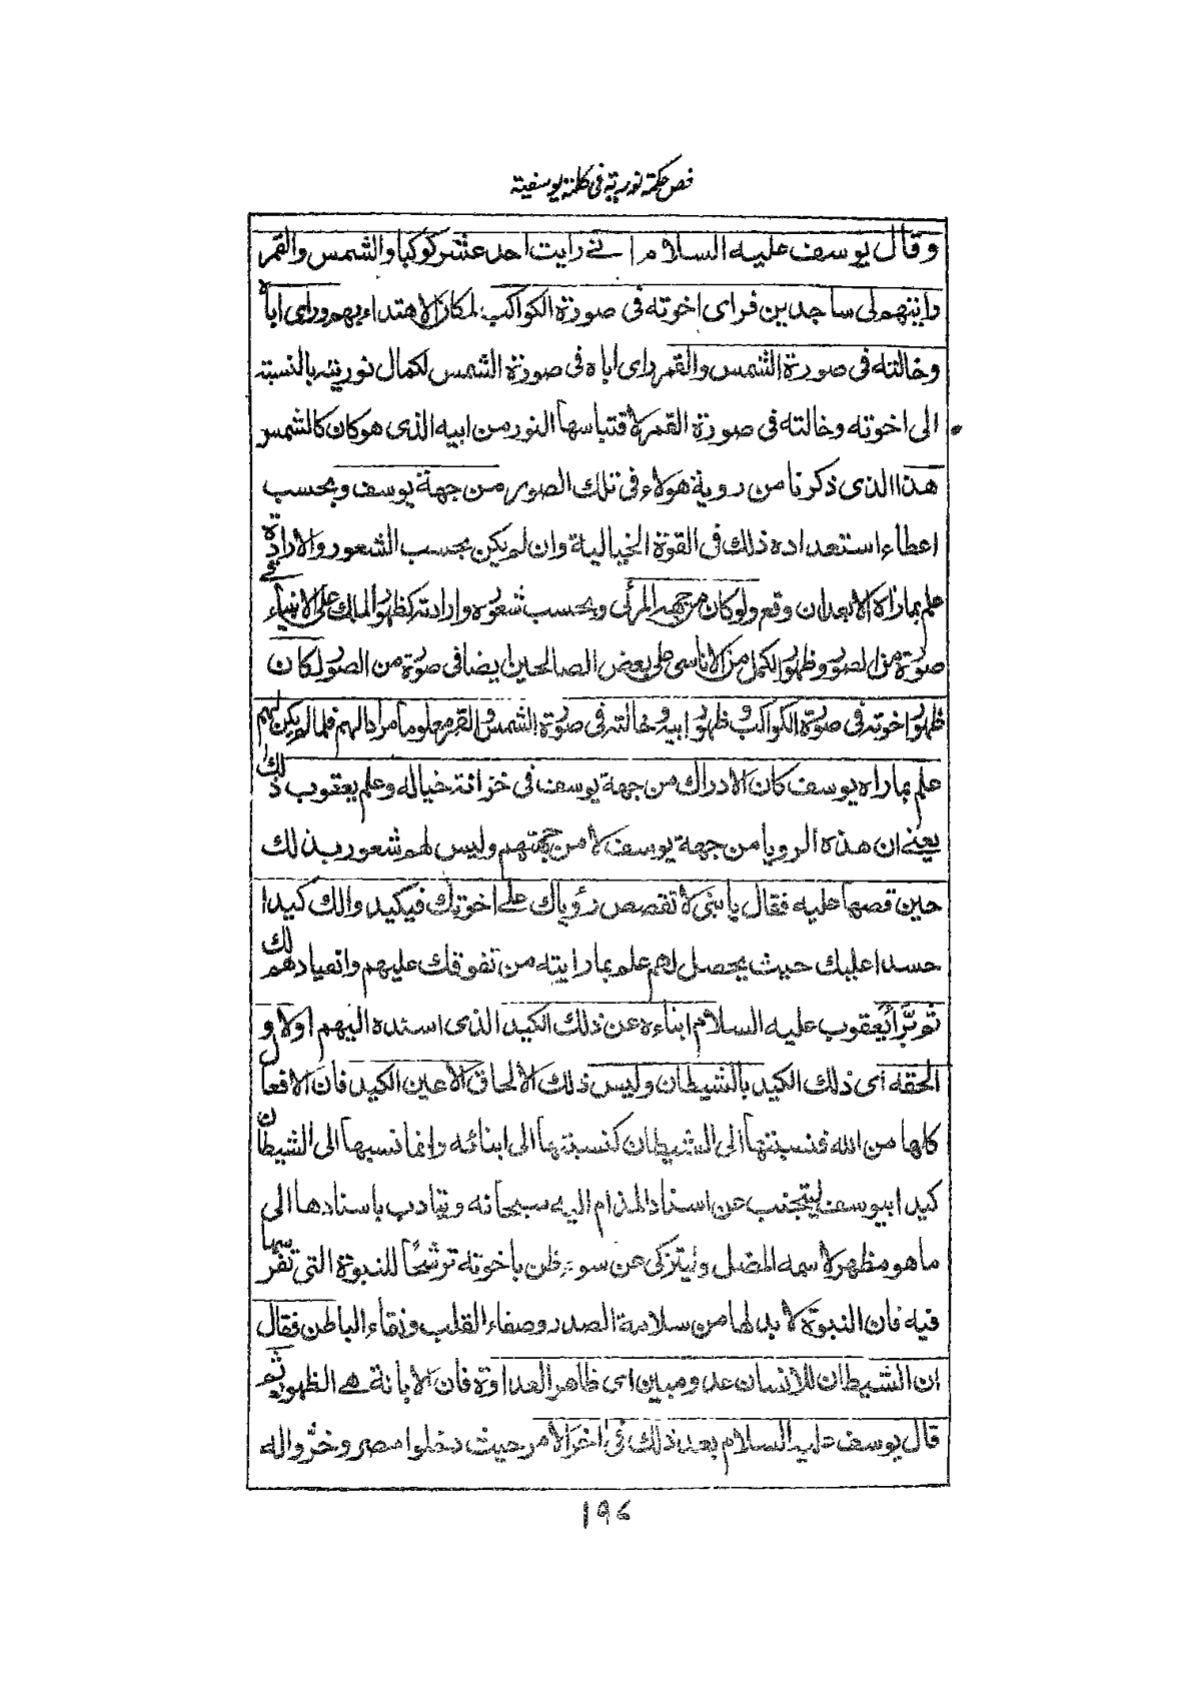 فص حكمة نورية فى كلمة يوسفية
وقال يوسف عليه السلام انے رايت احد عشر كوكبا والشمس والقمر
رايتهم لى ساجدين فراى اخوته فى صورة الكواكب لمكان الاهتداء بهم وراى اباه
وخالته فى صورة الشمس والقمر راى اباه فى صورة الشمس لكمال نوريته بالنسبة
الى اخوته وخالته فى صورة القمر لاقتباسها النور من ابيه الذى هو كان كالشمس
هذا الذى ذكرنا من روية هولاء فى تلك الصور من جهة يوسف وبحسب
اعطاء استعداده ذلك فى القوة الخيالية وان لم يكن بحسب الشعور والارادة فے
علم بماراه الا بعد ان وقع ولو كان من جهة المرئى وبحسب شعوره وارادته كظهور الملك على الانبياء
صورة من الصور وظهور الكمل من الاناسى على بعض الصالحين ايضا فى صورة من الصور لكان
ظهور اخوته فى صورة الكواكب وظهور ابيه وخالته فى صورة الشمس والقمر معلوما مرادا لهم فلما لم يكن لهم
علم بماراه يوسف كان الادراك من جهة يوسف فى خزانة خياله وعلم يعقوب ذلك
يعنے ان هذه الرويا من جهة يوسف لا من جهتهم وليس لهم شعور بذلك
حين قصها عليه فقال يا بنى لا تقصص رؤياك علے اخوتك فيكيد والك كيدا
حسدا عليك حيث يحصل لهم علم بمارايته من تفوقك عليهم وانقيادهم لك
ثم برّأ يعقوب عليه السلام ابناءه عن ذلك الكيد الذى اسنده اليهم اولا و
الحقه اى ذلك الكيد بالشيطان وليس ذلك الالحاق الا عين الكيد فان الافعال
كلها من الله فنسبتها الى الشيطان كنسبتها الى ابنائه وانما نسبها الى الشيطان
كيدا بيوسف ليتجنب عن اسناد المذام اليه سبحانه ويتادب باسنادها الى
ما هو مظهر لاسمه المضل وليتزكى عن سوء ظن باخوته ترشحًا للنبوة التى تفرسها
فيه فان النبوة لا بد لها من سلامة الصدر وصفاء القلب ونقاء الباطن فقال
ان الشيطان للانسان عدو مبين اى ظاهر العداوة فان الابانة هے الظهور ثم
قال يوسف عليه السلام بعد ذلك فى اخر الامر حيث دخلوا مصر وخرّواله
١٩٦